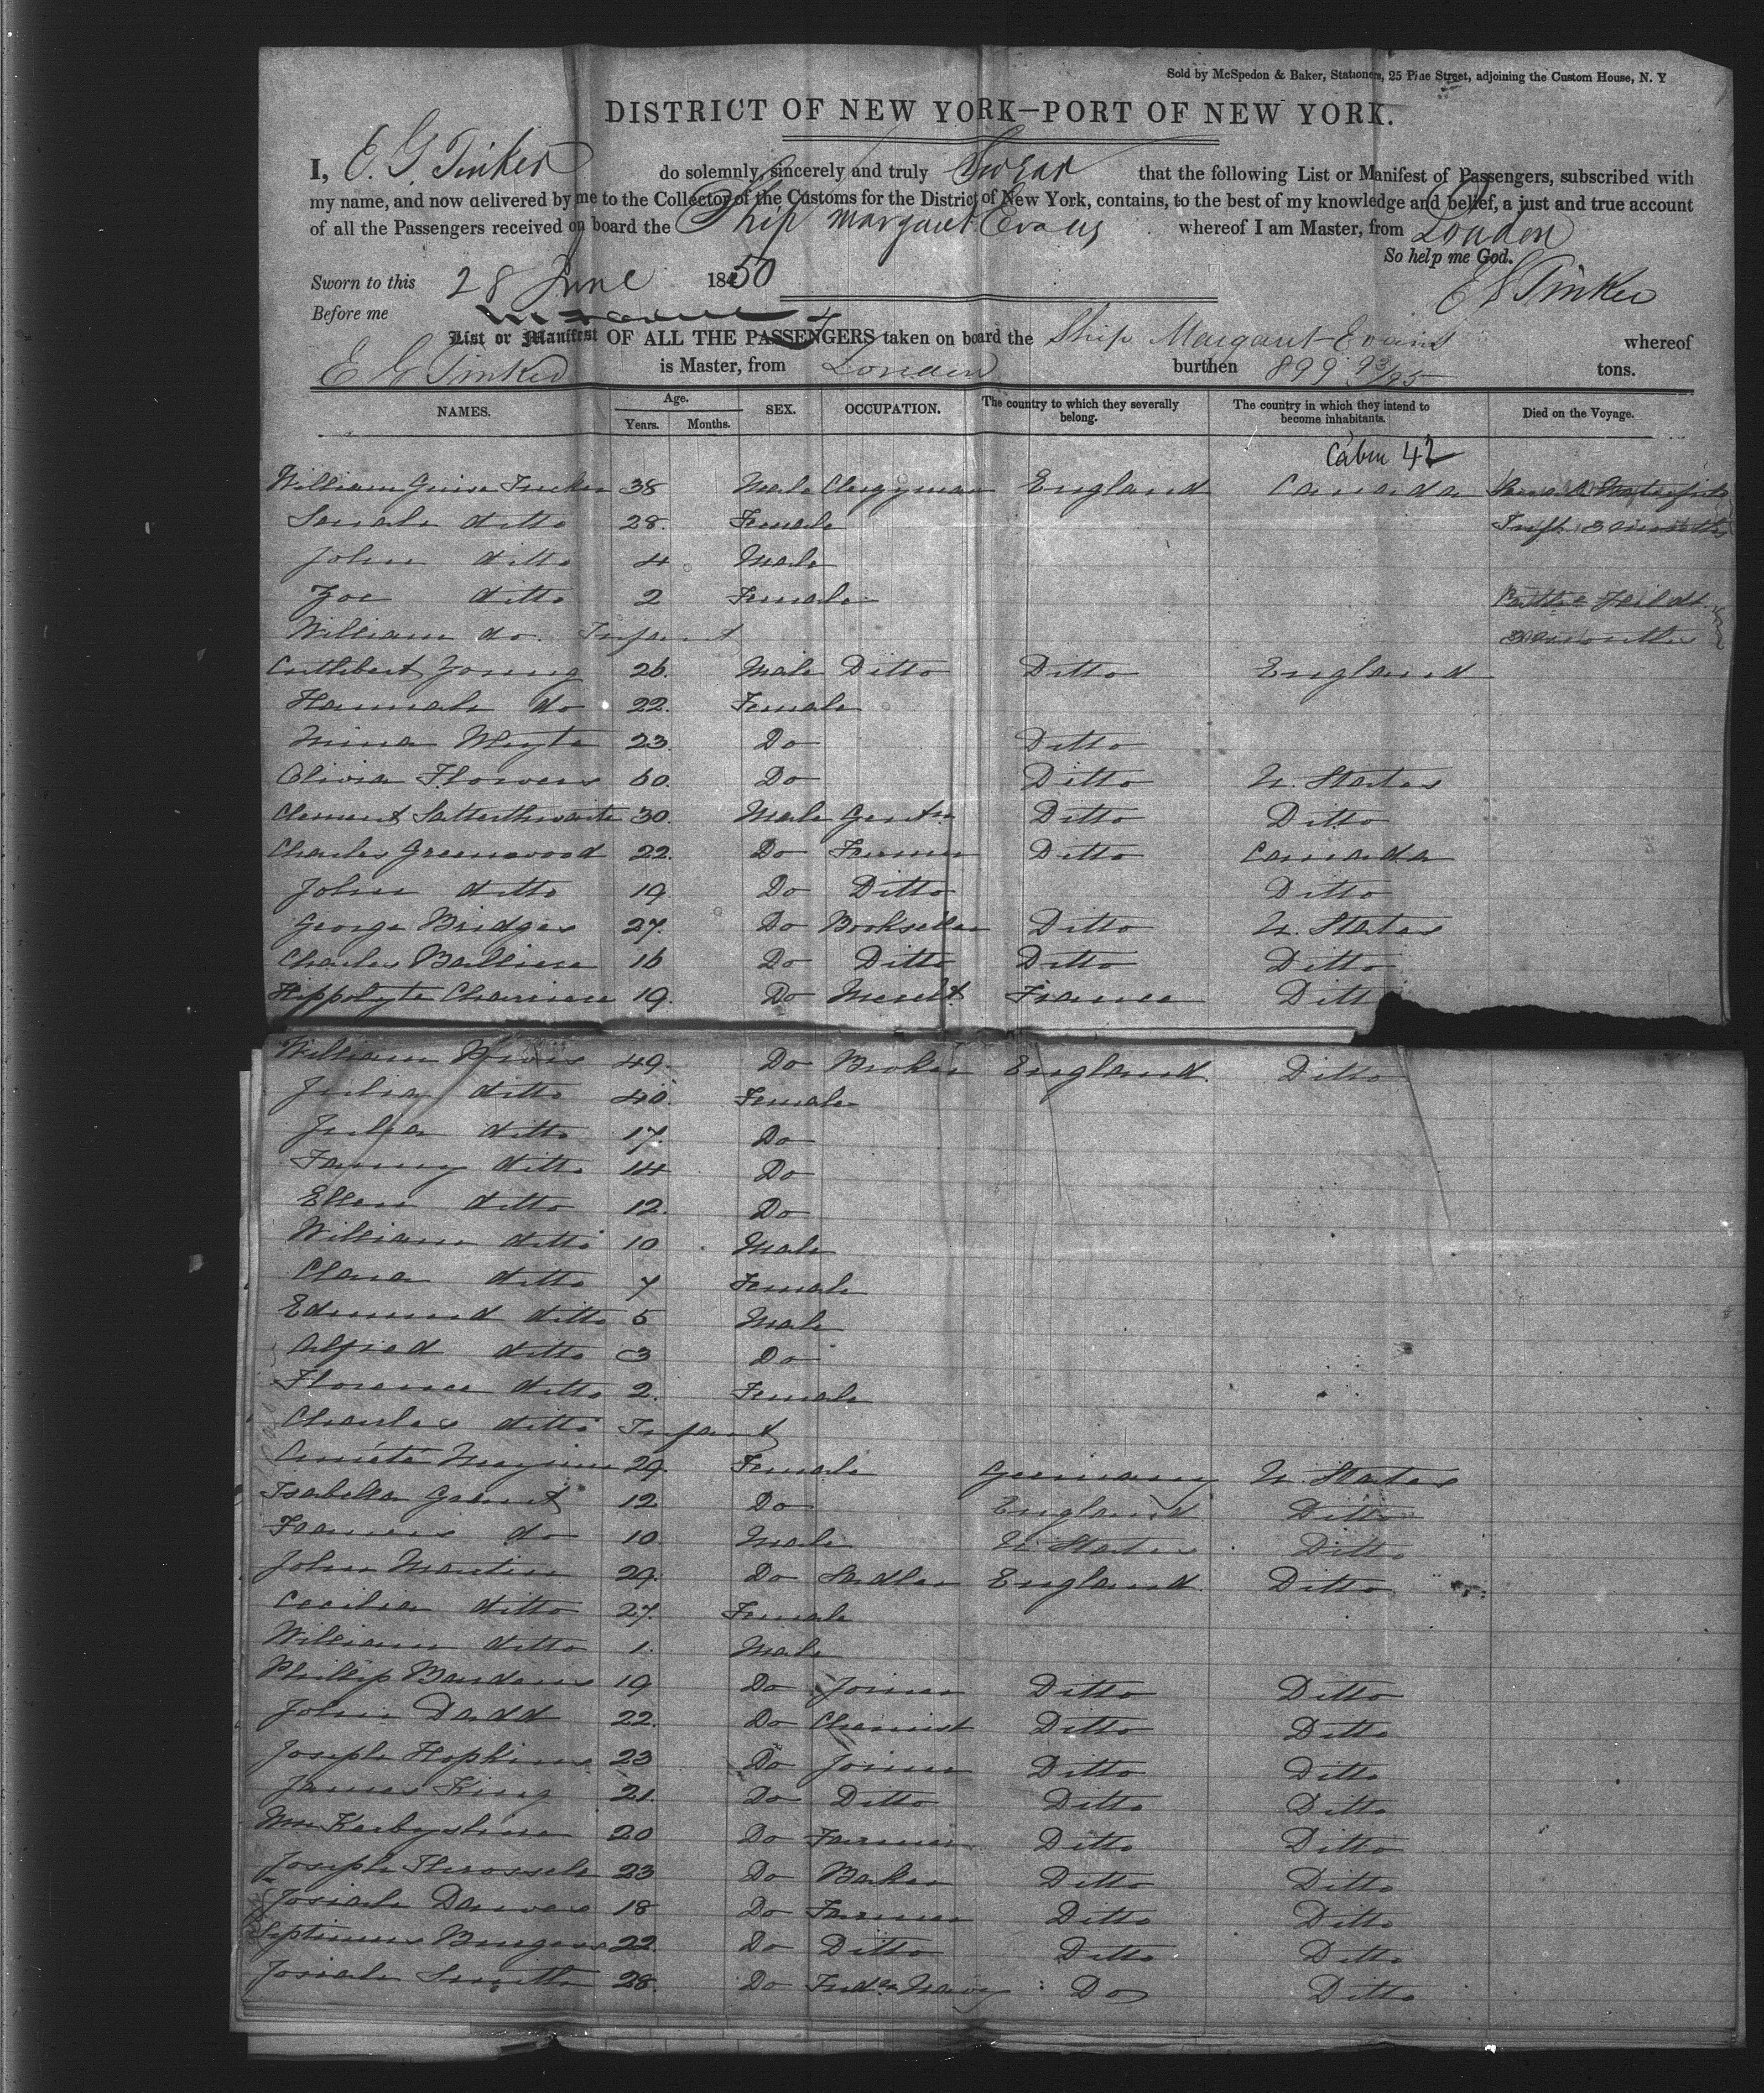 Sold by McSpedon & Baker, Stationers, 25 Pine Street, adjoining the Custom House, N. Y
DISTRICT OF NEW YORK—PORT OF NEW YORK.
I, E. G. Tinker do solemnly, sincerely and truly Swear that the following List or Manifest of Passengers, subscribed with
my name, and now delivered by me to the Collector of the Customs for the District of New York, contains, to the best of my knowledge and belief, a just and true account
of all the Passengers received on board the Ship Margaret Evans whereof I am Master, from London
So help me God.
Sworn to this 28 June 1850 E G Tinker
Before me
List or Manifest OF ALL THE PASSENGERS taken on board the Ship Margaret Evans whereof
E G Tinker is Master, from London burthen 899 93/95 tons.
NAMES. Age. Years. Months. SEX. OCCUPATION. The country to which they severally belong. The country in which they intend to become inhabitants. Died on the Voyage.
Cabin 42
William Tucker 38 Male Clergyman England Canada
Sarah ditto 28 Female
John ditto 4 Male
Zoe ditto 2 Female
William do. Infant
Cuthbert Young 26 Male Ditto Ditto England
Hannah do 22 Female
Mina 23 Do Ditto
Olivia Flowers 60 Do Ditto U. States
Clement Satterthwaite 30 Male Gentn Ditto Ditto
Charles Greenwood 22 Do Farmer Ditto Canada
John ditto 19 Do Ditto Ditto
George Bridges 27 Do Bookseller Ditto U. States
Charles 16 Do Ditto Ditto Ditto
Hippolyte 19 Do Mercht France Ditto
William 49 Do Broker England Ditto
Julia ditto 40 Female
Julia ditto 17 Do
Fanny ditto 14 Do
Ellen ditto 12 Do
William ditto 10 Male
Clara ditto 7 Female
Edmund ditto 5 Male
Alfred ditto 3 Do
Florence ditto 2 Female
Charles ditto Infant
29 Female Germany U. States
Isabella 12 Do England Ditto
do 10 Male U. States Ditto
John Martin 29 Do Sadler England Ditto
Cecilia ditto 27 Female
William ditto 1 Male
Phillip 19 Do Joiner Ditto Ditto
John Dadd 22 Do Chemist Ditto Ditto
Joseph Hopkins 23 Do Joiner Ditto Ditto
James King 21 Do Ditto Ditto Ditto
Wm 20 Do Farmer Ditto Ditto
Joseph 23 Do Baker Ditto Ditto
Josiah 18 Do Farmer Ditto Ditto
Septimus Burgess 22 Do Ditto Ditto Ditto
Josiah Smith 28 Do Navy Do Ditto